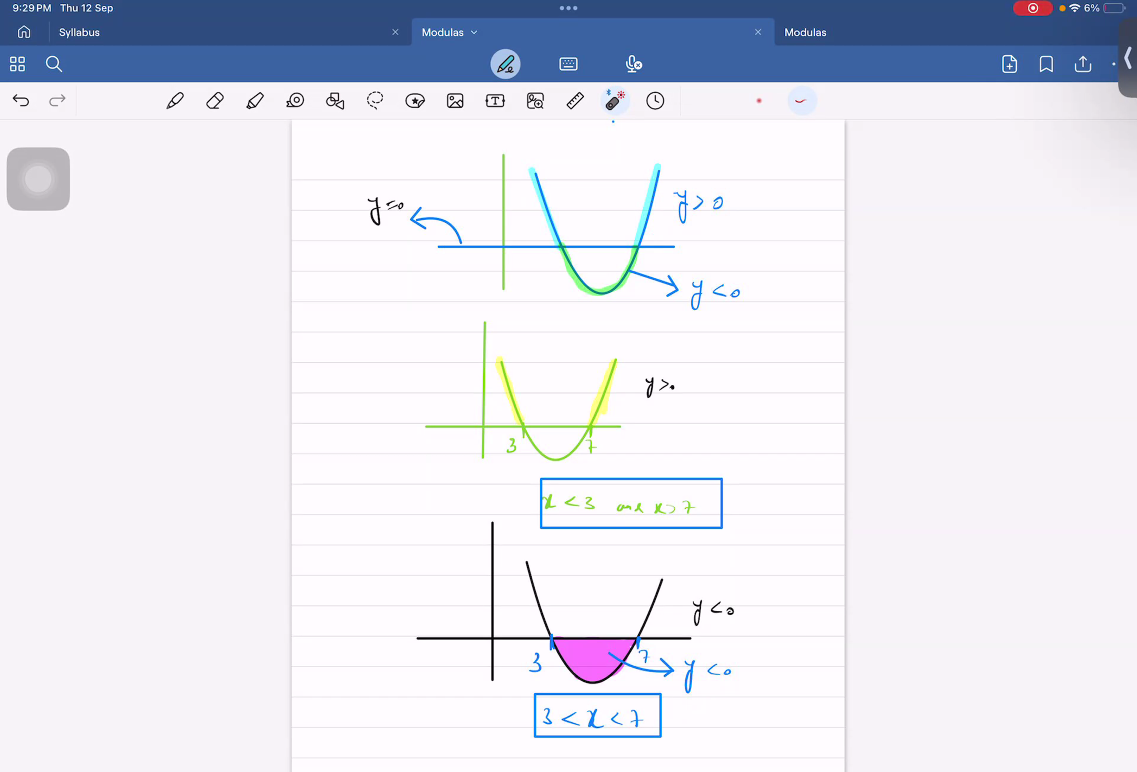 9:29 PM Thu 12 Sep
6%
Syllabus
Modulas
Modulas
y=0
y>0
y<0
y>0
3
7
x<3 and x>7
y<0
3
7
y<0
3<x<7